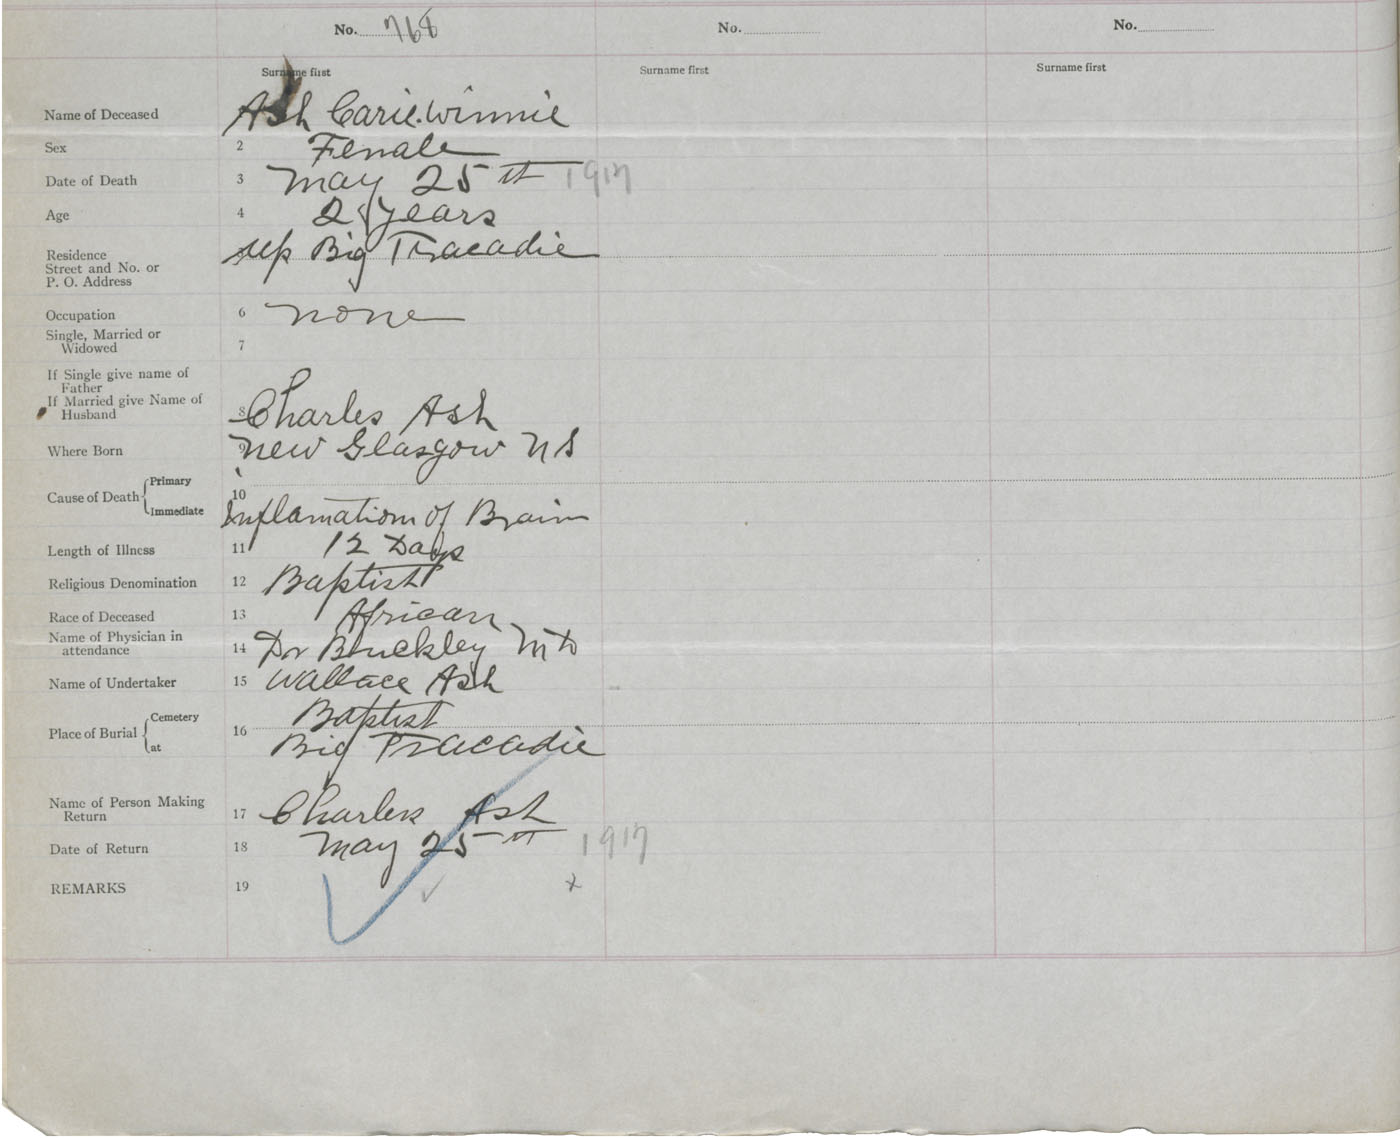 No. 768 No. No.
Surname first Surname first Surname first
Name of Deceased Ash Carie. Winnie
Sex 2 Female
Date of Death 3 May 25th 1917
Age 4 2 years
Residence Big Tracadie
Street and No. or
P. O. Address
Occupation 6 none
Single, Married or
Widowed 7
If Single give name of
Father
If Married give Name of
Husband 8 Charles Ash
Where Born 9 New Glasgow N S
Primary
Cause of Death 10
Immediate Inflamation of Brain
Length of Illness 11 12 Days
Religious Denomination 12 Baptist
Race of Deceased 13 African
Name of Physician in
attendance 14 Dr Buckley MD
Name of Undertaker 15 Wallace Ash
Cemetery Baptist
Place of Burial 16
at Big Tracadie
Name of Person Making
Return 17 Charles Ash
Date of Return 18 May 25th 1917
REMARKS 19 x